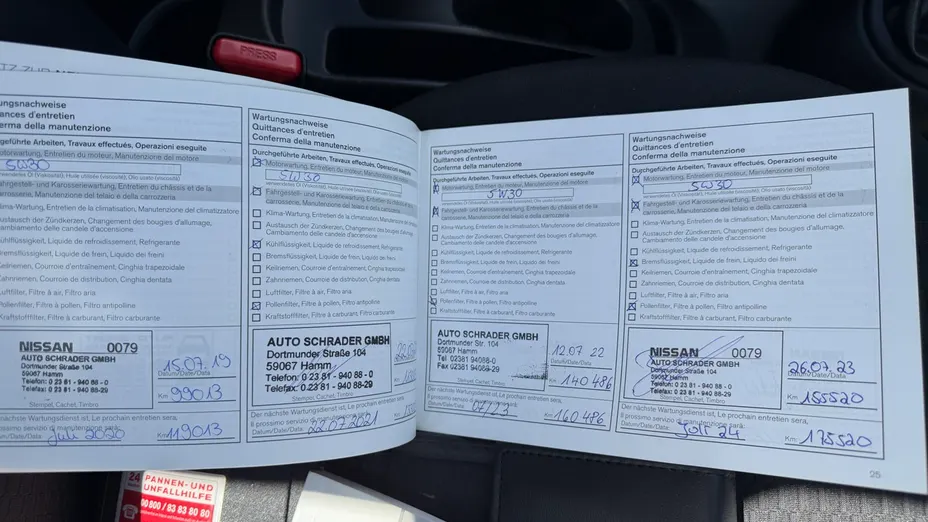 PRESS
Wartungsnachweise
Quittances d'entretien
Conferma della manutenzione
Durchgeführte Arbeiten, Travaux effectués, Operazioni eseguite
Motorwartung, Entretien du moteur, Manutenzione del motore
5W30
verwendetes Öl (Viscosität), Huile utilisée (viscosité), Olio usato (viscosità)
Fahrgestell- und Karosseriewartung, Entretien du châssis et de la
carrosserie, Manutenzione del telaio e della carrozzeria
Klima-Wartung, Entretien de la climatisation, Manutenzione del climatizzatore
Austausch der Zündkerzen, Changement des bougies d'allumage,
Cambiamento delle candele d'accensione
Kühlflüssigkeit, Liquide de refroidissement, Refrigerante
Bremsflüssigkeit, Liquide de frein, Liquido dei freini
Keilriemen, Courroie d'entraînement, Cinghia trapezoidale
Zahnriemen, Courroie de distribution, Cinghia dentata
Luftfilter, Filtre à air, Filtro aria
Pollenfilter, Filtre à pollen, Filtro antipolline
Kraftstofffilter, Filtre à carburant, Filtro carburante
NISSAN 0079
AUTO SCHRADER GMBH
Dortmunder Straße 104
59067 Hamm
Telefon: 0 23 81 - 940 88 - 0
Telefax: 0 23 81 - 940 88-29
Stempel, Cachet, Timbro
15.07.19
Datum/Date/Data
Km: 99013
Juli 2020
Km: 119013
Wartungsnachweise
Quittances d'entretien
Conferma della manutenzione
Durchgeführte Arbeiten, Travaux effectués, Operazioni eseguite
Motorwartung, Entretien du moteur, Manutenzione del motore
5W30
Fahrgestell- und Karosseriewartung, Entretien du châssis et de la
carrosserie, Manutenzione del telaio e della carrozzeria
Klima-Wartung, Entretien de la climatisation, Manutenzione
Austausch der Zündkerzen, Changement des bougies
Cambiamento delle candele d'accensione
Kühlflüssigkeit, Liquide de refroidissement, Refrigerante
Bremsflüssigkeit, Liquide de frein, Liquido dei freini
Keilriemen, Courroie d'entraînement, Cinghia trapezoidale
Zahnriemen, Courroie de distribution, Cinghia dentata
Luftfilter, Filtre à air, Filtro aria
Pollenfilter, Filtre à pollen, Filtro antipolline
Kraftstofffilter, Filtre à carburant, Filtro carburante
AUTO SCHRADER GMBH
Dortmunder Straße 104
59067 Hamm
Telefon: 0 23 81 - 940 88-0
Telefax: 0 23 81 - 940 88-29
Stempel, Cachet, Timbro
Der nächste Wartungsdienst ist, Le prochain entretien sera,
Il prossimo servizio di manutenzione sarà:
Datum/Date/Data: 22.07.2021
Wartungsnachweise
Quittances d'entretien
Conferma della manutenzione
Durchgeführte Arbeiten, Travaux effectués, Operazioni eseguite
Motorwartung, Entretien du moteur, Manutenzione del motore
5W30
Fahrgestell- und Karosseriewartung, Entretien du châssis et de la
carrosserie, Manutenzione del telaio e della carrozzeria
Klima-Wartung, Entretien de la climatisation, Manutenzione del climatizzatore
Austausch der Zündkerzen, Changement des bougies d'allumage,
Cambiamento delle candele d'accensione
Kühlflüssigkeit, Liquide de refroidissement, Refrigerante
Bremsflüssigkeit, Liquide de frein, Liquido dei freini
Keilriemen, Courroie d'entraînement, Cinghia trapezoidale
Zahnriemen, Courroie de distribution, Cinghia dentata
Luftfilter, Filtre à air, Filtro aria
Pollenfilter, Filtre à pollen, Filtro antipolline
Kraftstofffilter, Filtre à carburant, Filtro carburante
AUTO SCHRADER GMBH
Dortmunder Str. 104
59067 Hamm
Tel 02381 94088-0
Fax 02381 94088-29
Stempel, Cachet, Timbro
12.07.22
Datum/Date/Data
Km: 140 486
Der nächste Wartungsdienst ist, Le prochain entretien sera,
Il prossimo servizio di manutenzione sarà:
Datum/Date/Data: 07/23
Km: 160.486
Wartungsnachweise
Quittances d'entretien
Conferma della manutenzione
Durchgeführte Arbeiten, Travaux effectués, Operazioni eseguite
Motorwartung, Entretien du moteur, Manutenzione del motore
5W30
verwendetes Öl (Viscosität), Huile utilisée (viscosité), Olio usato (viscosità)
Fahrgestell- und Karosseriewartung, Entretien du châssis et de la
carrosserie, Manutenzione del telaio e della carrozzeria
Klima-Wartung, Entretien de la climatisation, Manutenzione del climatizzatore
Austausch der Zündkerzen, Changement des bougies d'allumage,
Cambiamento delle candele d'accensione
Kühlflüssigkeit, Liquide de refroidissement, Refrigerante
Bremsflüssigkeit, Liquide de frein, Liquido dei freini
Keilriemen, Courroie d'entraînement, Cinghia trapezoidale
Zahnriemen, Courroie de distribution, Cinghia dentata
Luftfilter, Filtre à air, Filtro aria
Pollenfilter, Filtre à pollen, Filtro antipolline
Kraftstofffilter, Filtre à carburant, Filtro carburante
NISSAN 0079
AUTO SCHRADER GMBH
Dortmunder Straße 104
59067 Hamm
Telefon: 0 23 81 - 940 88 - 0
Telefax: 0 23 81 - 940 88-29
Stempel, Cachet, Timbro
26.07.23
Datum/Date/Data
Km: 155520
Der nächste Wartungsdienst ist, Le prochain entretien sera,
Il prossimo servizio di manutenzione sarà:
Datum/Date/Data: Juli 24
Km: 175520
25
24
PANNEN- UND
UNFALLHILFE
00 800 / 83 83 80 80